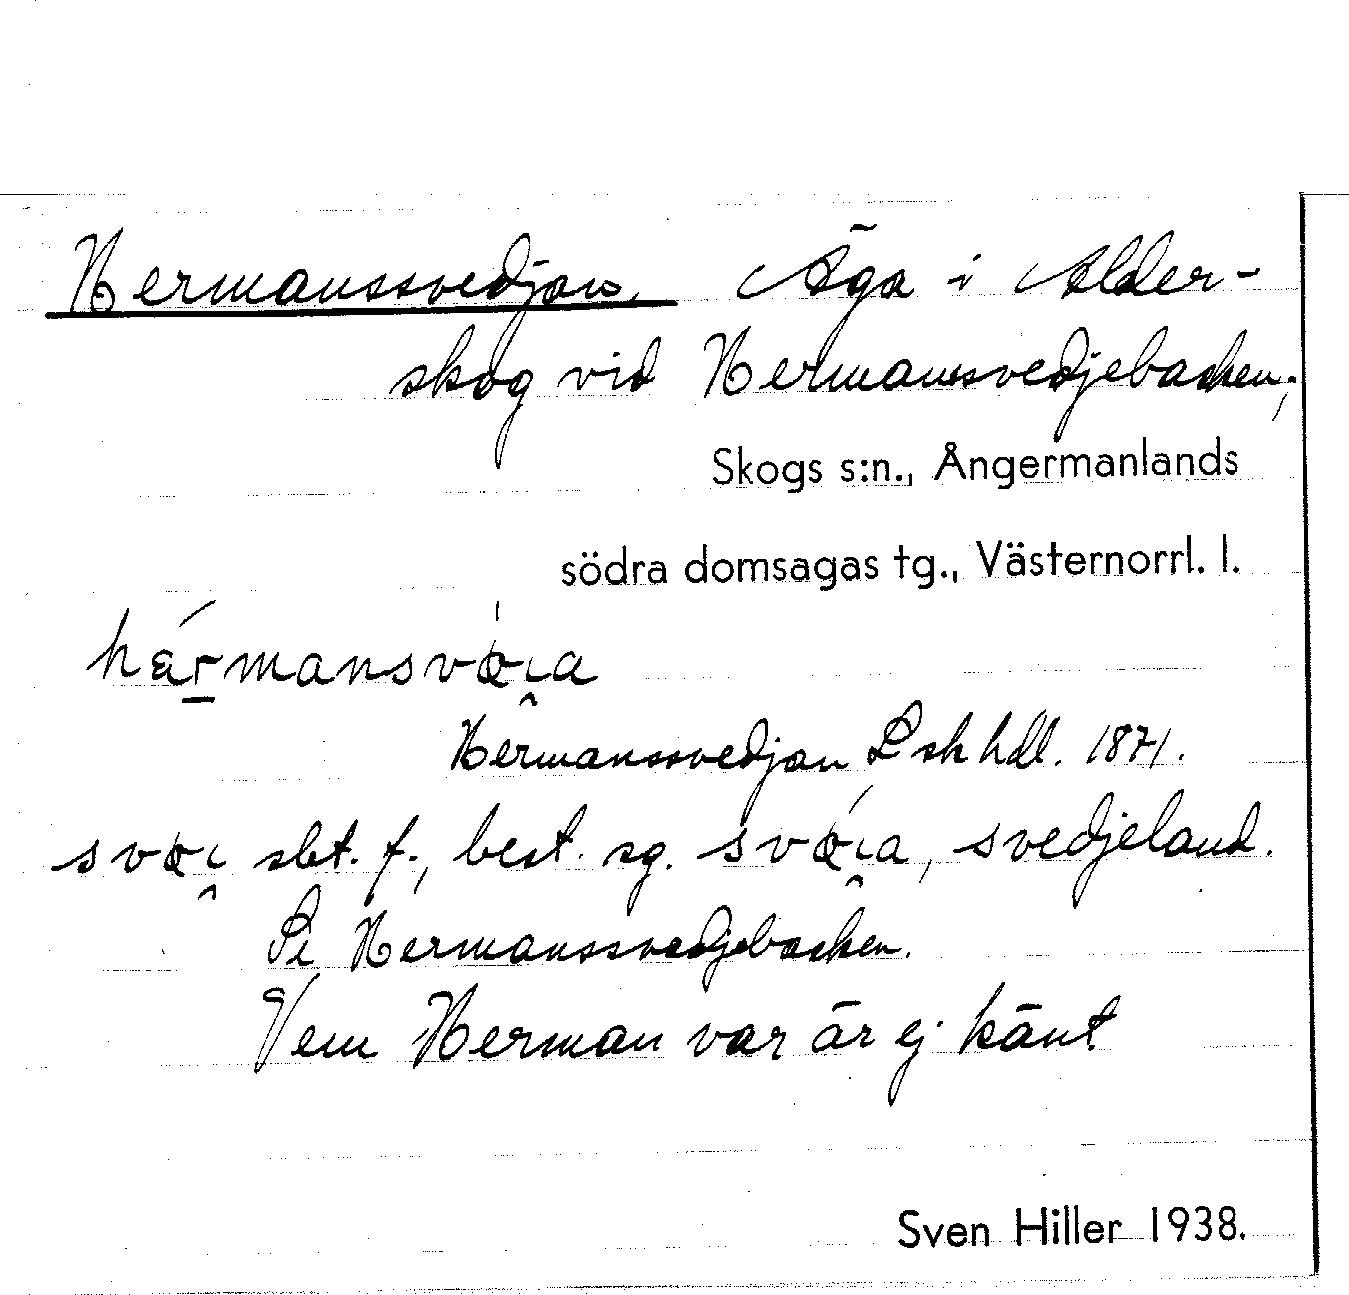 Hermanssvedjan, Äga i Alder-
skog vid Hermanssvedjebacken;
Skogs s:n., Ångermanlands
södra domsagas tg., Västernorrl. l.
Hermanssvedjan L sk hdl. 1871.
sbt. f., best. sg. svedjeland.
Se Hermanssvedjebacken.
Vem Herman var är ej känt
Sven Hiller 1938.